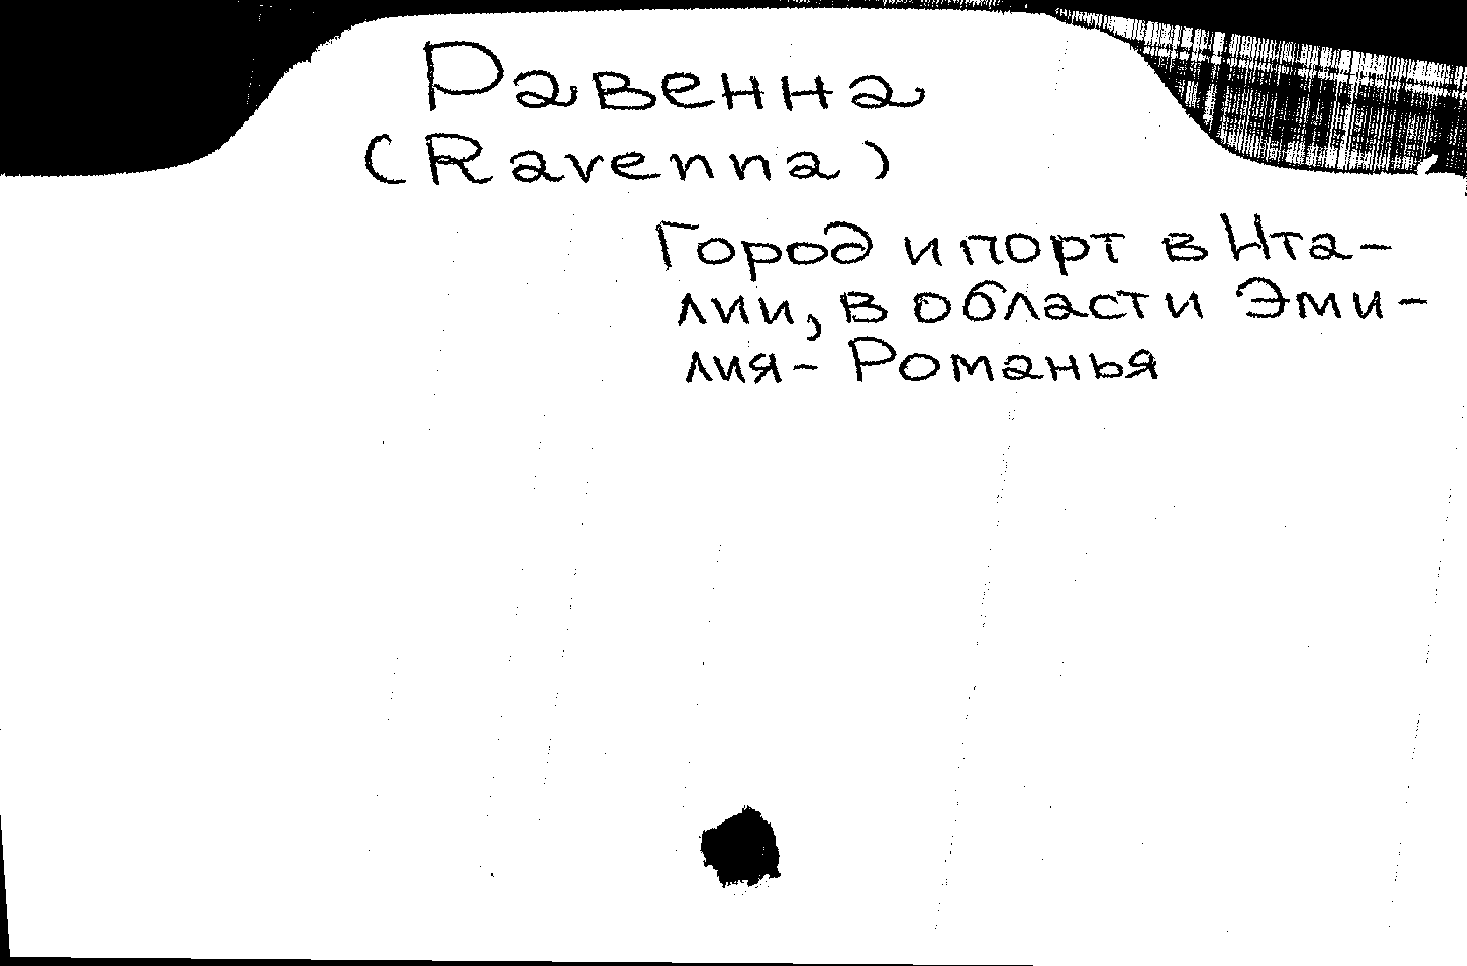 Равенна
(Ravenna)
Город и порт в Ита-
лии, в области Эми-
лия-Романья